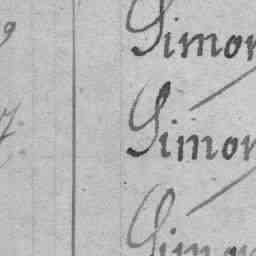 9 Simon
7. Simon
Simon